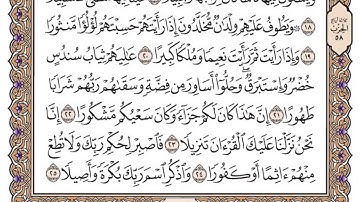 ۞ وَيَطُوفُ عَلَيْهِمْ وِلْدَٰنٌ مُّخَلَّدُونَ إِذَا رَأَيْتَهُمْ حَسِبْتَهُمْ لُؤْلُؤًا مَّنثُورًا
١٩ وَإِذَا رَأَيْتَ ثَمَّ رَأَيْتَ نَعِيمًا وَمُلْكًا كَبِيرًا ٢٠ عَٰلِيَهُمْ ثِيَابُ سُندُسٍ
خُضْرٌ وَإِسْتَبْرَقٌ وَحُلُّوٓا۟ أَسَاوِرَ مِن فِضَّةٍ وَسَقَىٰهُمْ رَبُّهُمْ شَرَابًا
طَهُورًا ٢١ إِنَّ هَٰذَا كَانَ لَكُمْ جَزَآءً وَكَانَ سَعْيُكُم مَّشْكُورًا ٢٢ إِنَّا
نَحْنُ نَزَّلْنَا عَلَيْكَ ٱلْقُرْءَانَ تَنزِيلًا ٢٣ فَٱصْبِرْ لِحُكْمِ رَبِّكَ وَلَا تُطِعْ
مِنْهُمْ ءَاثِمًا أَوْ كَفُورًا ٢٤ وَٱذْكُرِ ٱسْمَ رَبِّكَ بُكْرَةً وَأَصِيلًا ٢٥
الحزب
٥٨